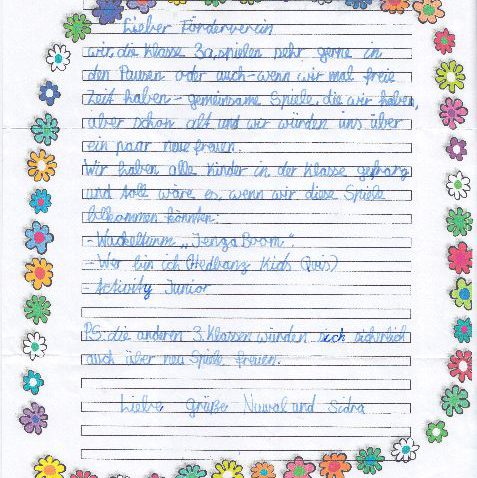 Lieber Förderverein
wir, die Klasse 3a, spielen sehr gerne in
den Pausen oder auch-wenn wir mal freie
Zeit haben - gemeinsame Spiele, die wir haben,
aber schon alt und wir würden uns über
ein paar neue freuen.
Wir haben alle Kinder in der Klasse gefrag
und toll wäre es, wenn wir diese Spiele
bekommen könnten:
-Wackelturm „Jenga Boom".
-Wer bin ich (Hedbanz Kids)
-Activity Junior
PS: die anderen 3. Klassen würden sich sicherlich
auch über neu Spiele freuen.
Liebe grüße Nuwal und Sidra